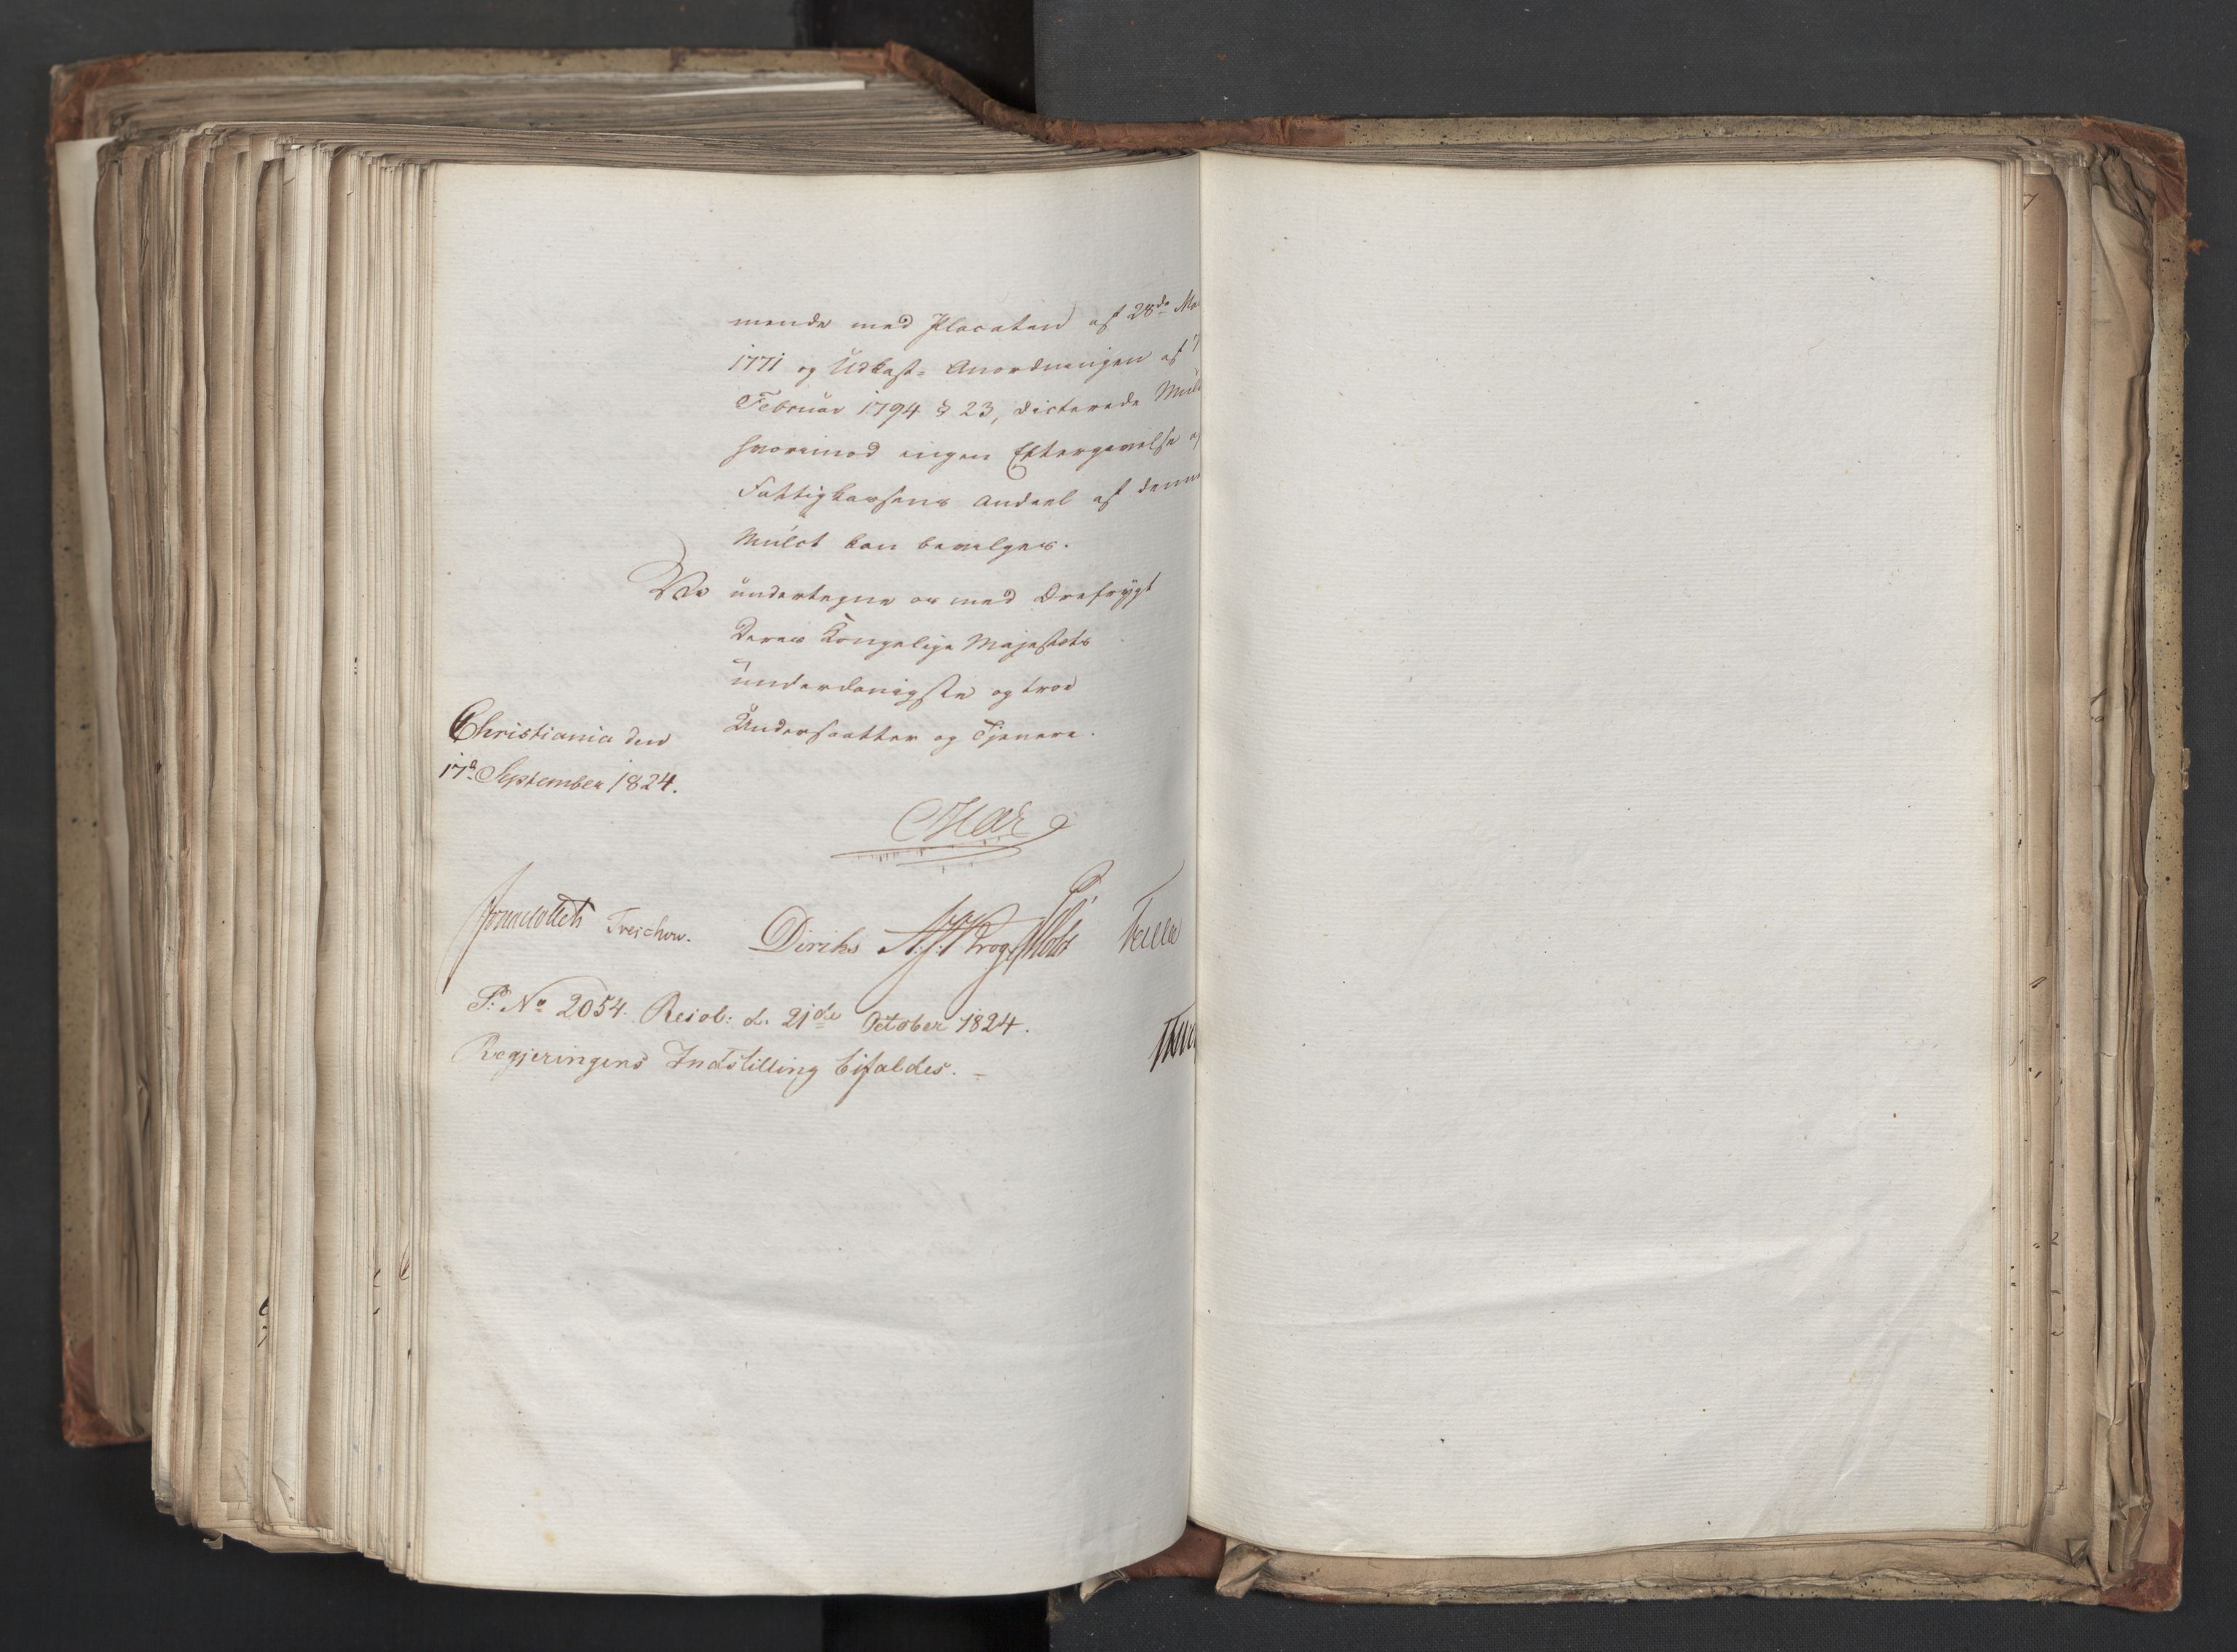 mende med Placaten af 28de Ma
1771 og Udkast- Anordningen af 7
Februar 1794 § 23, dicterede Mul
hvorimod ingen Eftergivelse af
Fattigkassens Andeel af denne
Mulct kan bevilges.
Vi undertegne os med Ærefrygt
Deres Kongelige Majestæts
underdanigste og troe
Undersaatter og Tjenere.
Christiania den
17d September 1824.
Sommerfeldt Treschow. Diriks
P. No 2054. Resol: d. 21de October 1824.
Regjeringens Indstilling bifaldes. –